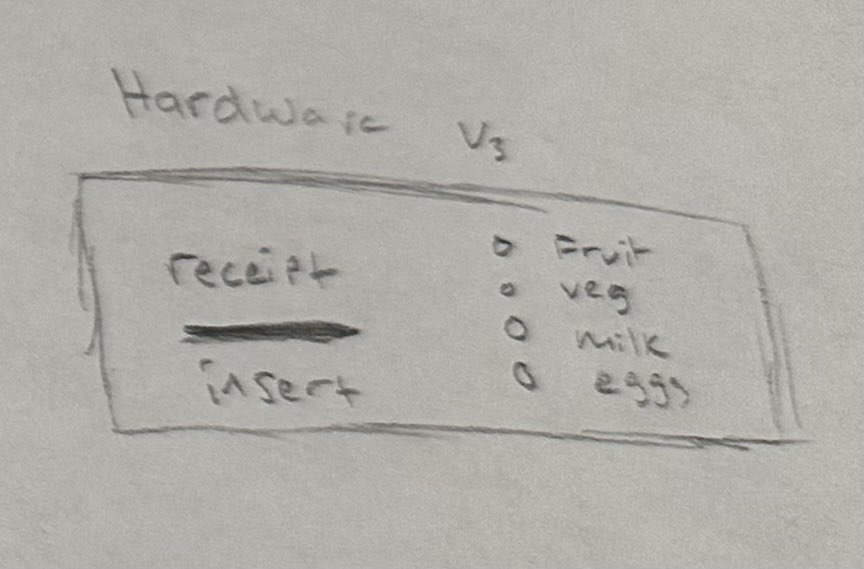 Hardware V3
receipt
insert
Fruit
veg
milk
eggs